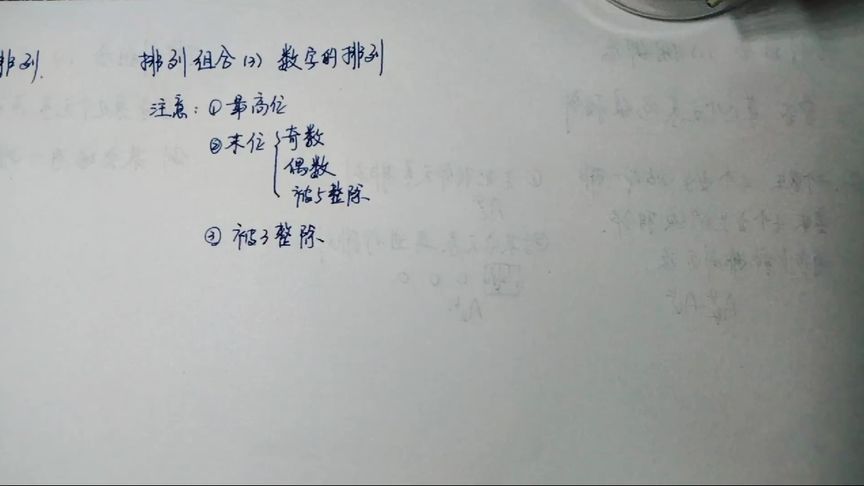 排列.
排列组合(3) 数字的排列
注意: ①最高位
②末位 { 奇数
偶数
被5整除
③ 被3整除